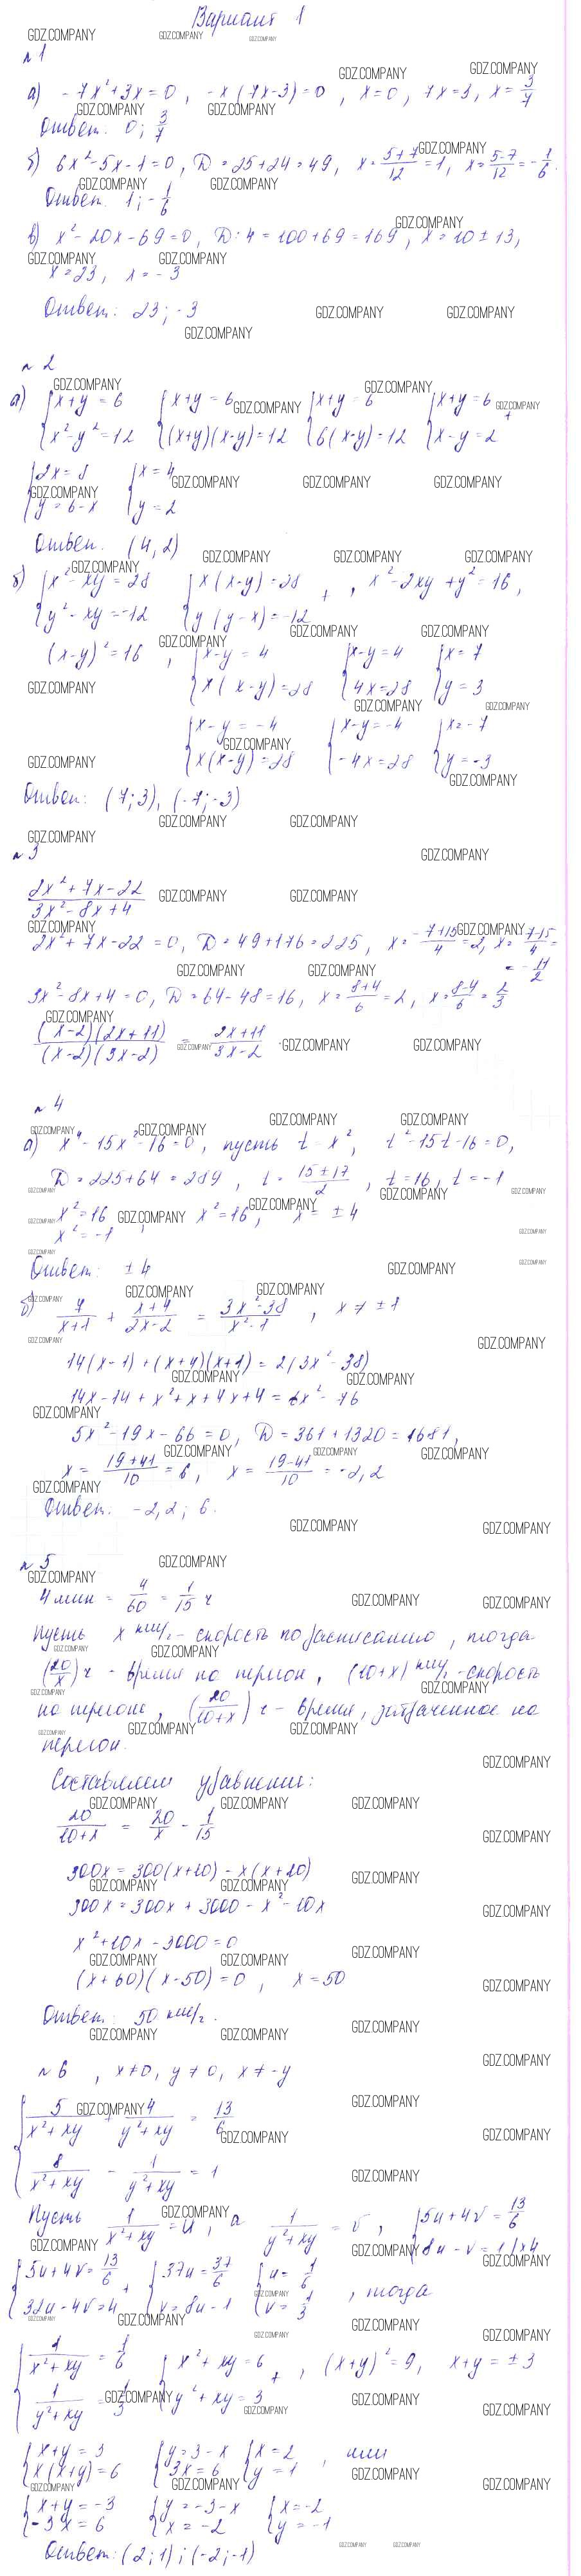 Вариант 1
№1
а) -7x²+3x=0, -x(7x-3)=0, x=0, 7x=3, x=3/7
Ответ: 0; 3/7
б) 6x²-5x-1=0, D=25+24=49, x=(5+7)/12=1, x=(5-7)/12=-1/6.
Ответ: 1; -1/6
в) x²-20x-69=0, D:4=100+69=169, x=10±13,
x=23, x=-3
Ответ: 23; -3
№2
а) {x+y=6 {x+y=6 {x+y=6 {x+y=6 +
{x²-y²=12 {(x+y)(x-y)=12 {6(x-y)=12 {x-y=2
{2x=8 {x=4
{y=6-x {y=2
Ответ: (4,2)
б) {x²-xy=28 {x(x-y)=28 +, x²-2xy+y²=16,
{y²-xy=-12 {y(y-x)=-12
(x-y)²=16, {x-y=4 {x-y=4 {x=7
{x(x-y)=28 {4x=28 {y=3
{x-y=-4 {x-y=-4 {x=-7
{x(x-y)=28 {-4x=28 {y=-3
Ответ: (7;3), (-7;-3)
№3
(2x²+7x-22)/(3x²-8x+4)
2x²+7x-22=0, D=49+176=225, x=(-7+15)/4=2, x=(-7-15)/4=
=-11/2
3x²-8x+4=0, D=64-48=16, x=(8+4)/6=2, x=(8-4)/6=2/3
((x-2)(2x+11))/((x-2)(3x-2)) = (2x+11)/(3x-2)
№4
а) x⁴-15x²-16=0, пусть t=x², t²-15t-16=0,
D=225+64=289, t=(15±17)/2, t=16, t=-1
x²=16, x²=16, x=±4
x²=-1
Ответ: ±4
б) 7/(x+1) + (x+4)/(2x-2) = (3x²-38)/(x²-1), x≠±1
14(x-1)+(x+4)(x+1)=2(3x²-38)
14x-14+x²+x+4x+4=6x²-76
5x²-19x-66=0, D=361+1320=1681,
x=(19+41)/10=6, x=(19-41)/10=-2,2
Ответ: -2,2; 6.
№5
4 мин = 4/60 = 1/15 ч
Пусть x км/ч - скорость по расписанию, тогда
(20/x) ч - время на перегон, (10+x) км/ч - скорость
на перегоне, (20/(10+x)) ч - время, затраченное на
перегон.
Составляем уравнение:
20/(10+x) = 20/x - 1/15
300x=300(x+10)-x(x+10)
300x=300x+3000-x²-10x
x²+10x-3000=0
(x+60)(x-50)=0, x=50
Ответ: 50 км/ч.
№6, x≠0, y≠0, x≠-y
{5/(x²+xy) + 4/(y²+xy) = 13/6
{8/(x²+xy) - 1/(y²+xy) = 1
Пусть 1/(x²+xy)=u, а 1/(y²+xy)=v, {5u+4v=13/6
{8u-v=1 |×4
{5u+4v=13/6 + {37u=37/6 {u=1/6
{32u-4v=4 {v=8u-1 {v=1/3, тогда
{1/(x²+xy)=1/6 {x²+xy=6 +, (x+y)²=9, x+y=±3
{1/(y²+xy)=1/3 {y²+xy=3
{x+y=3 {y=3-x {x=2, или
{x(x+y)=6 {3x=6 {y=1
{x+y=-3 {y=-3-x {x=-2
{-3x=6 {x=-2 {y=-1
Ответ: (2;1); (-2;-1)
GDZ.COMPANY